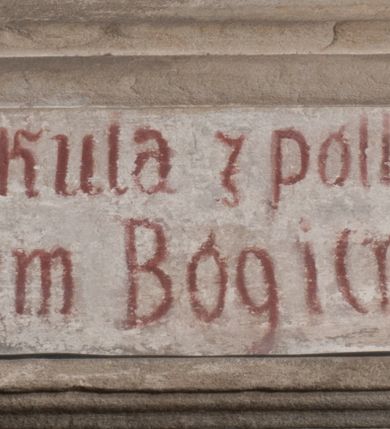 kula z poll
m Bogic